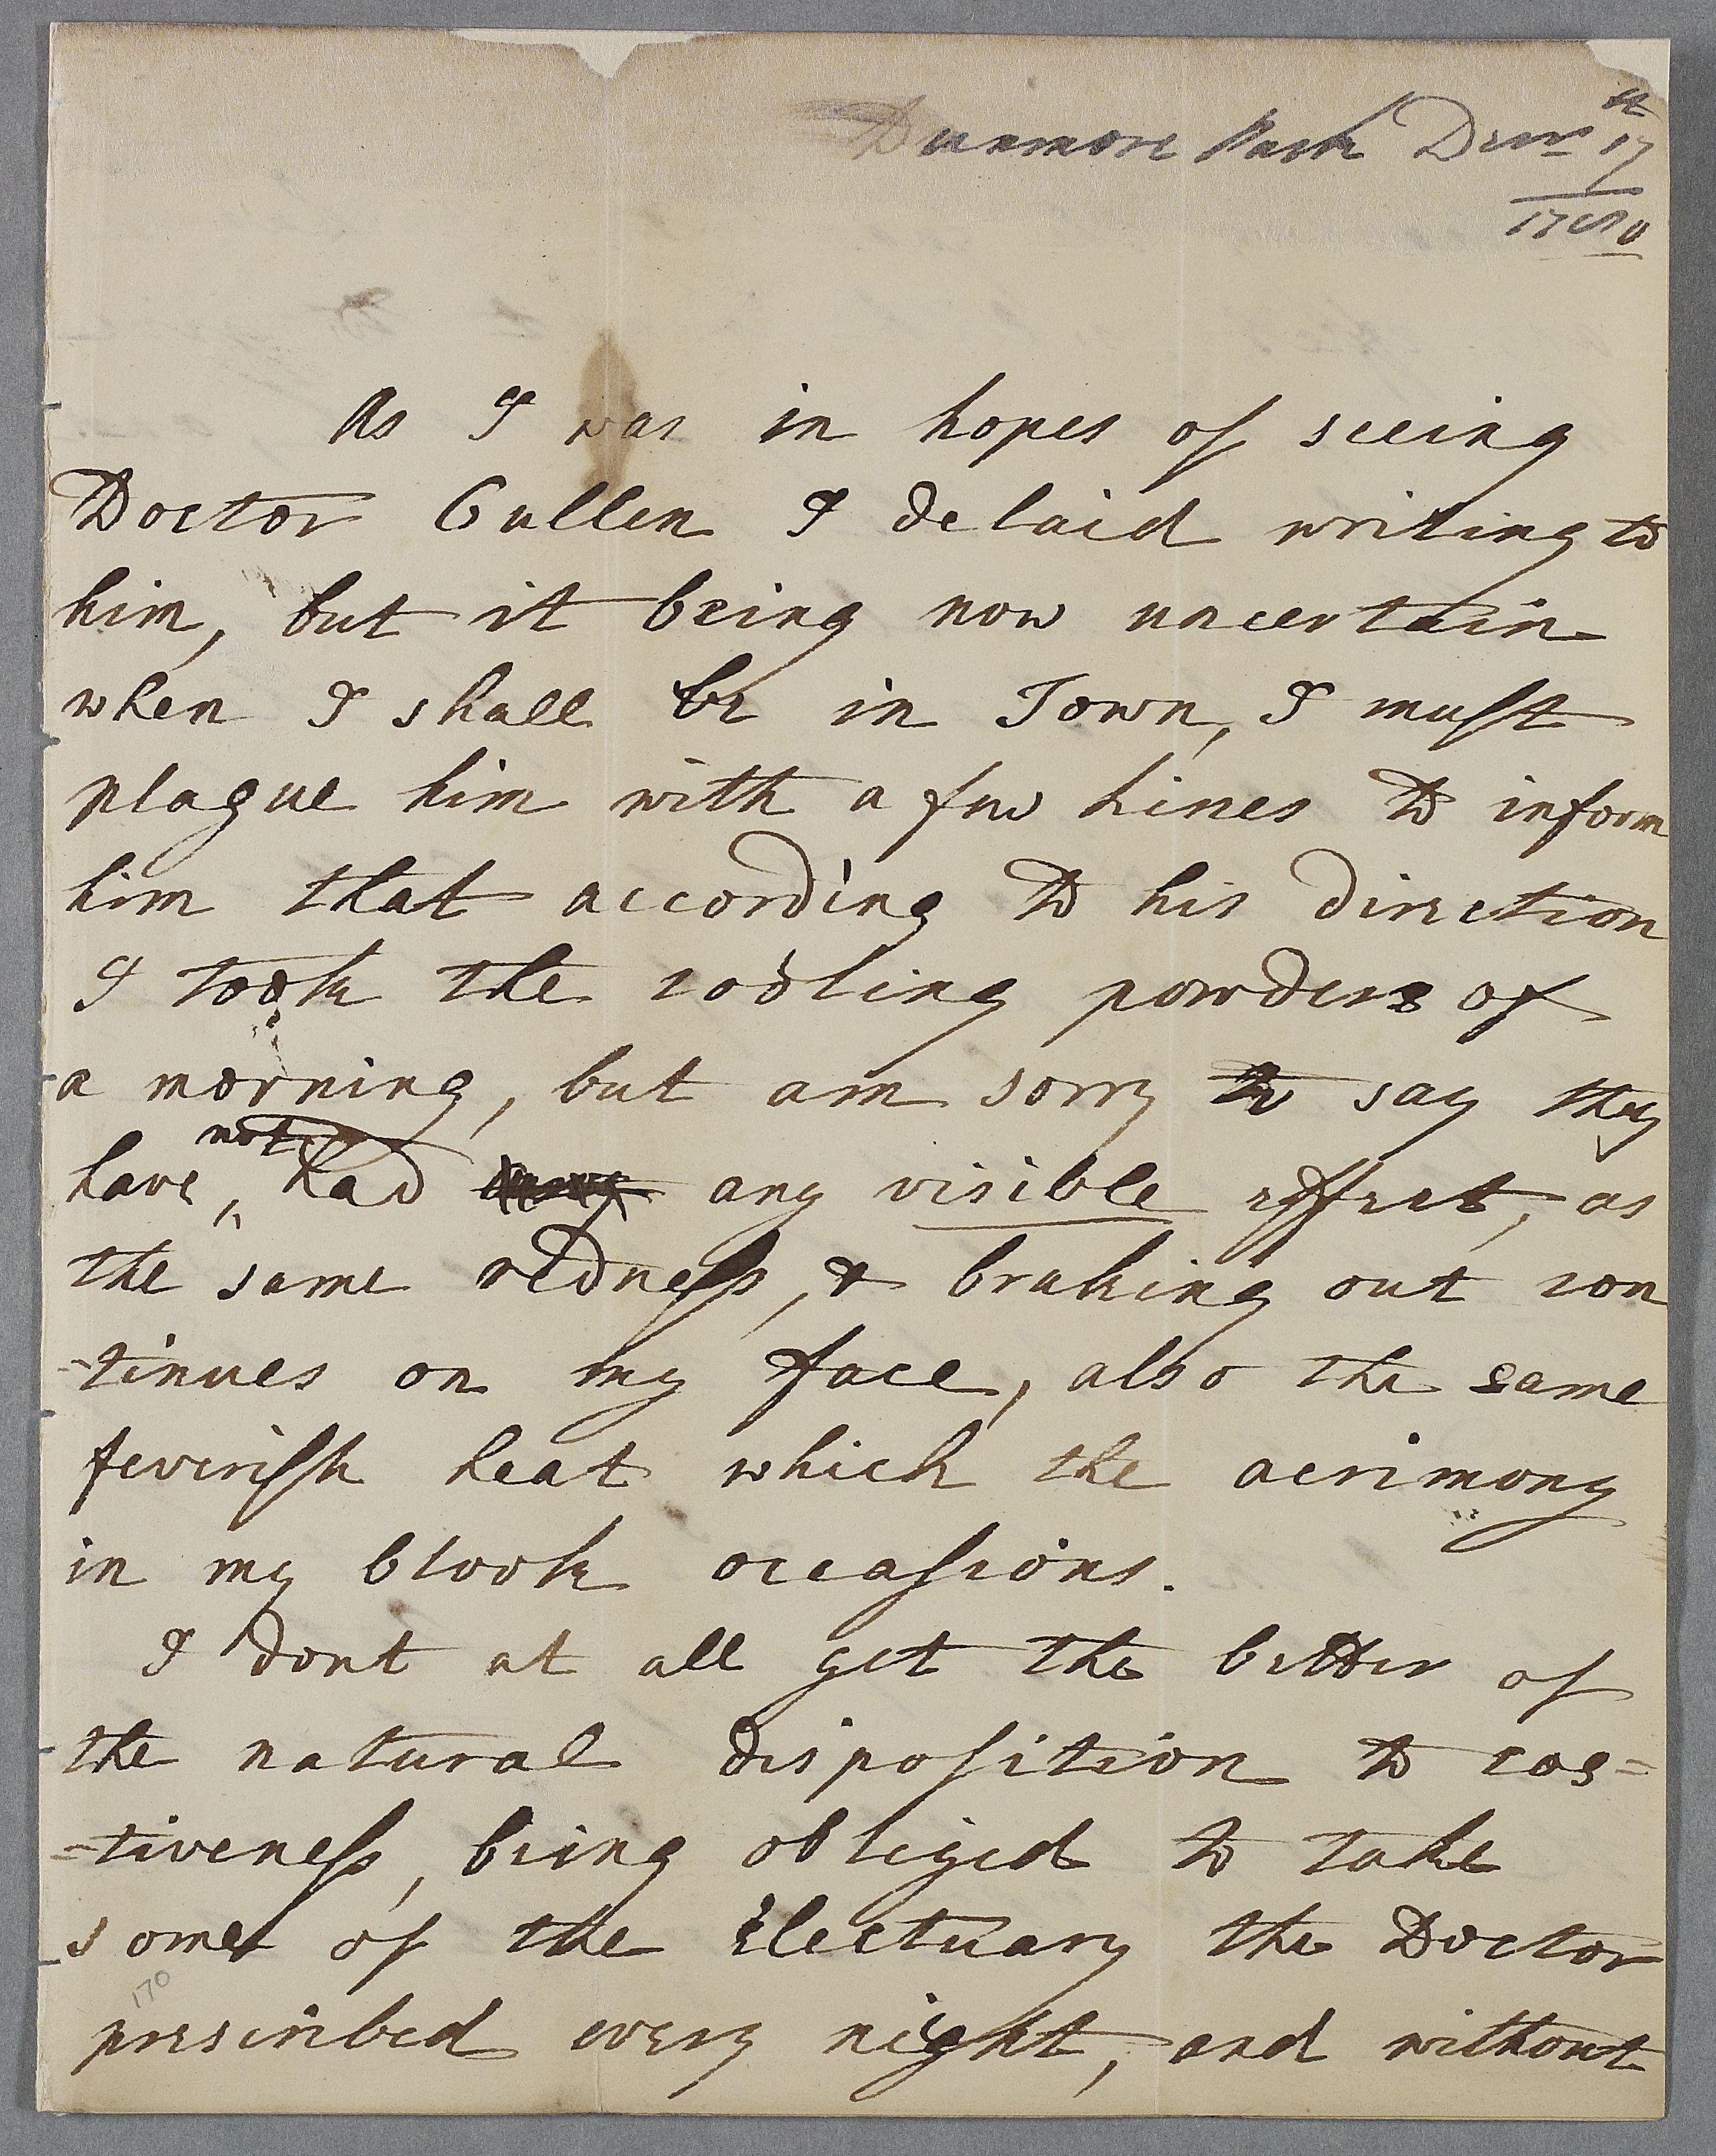 Dunmore Park Decr. 17th
1780
As I was in hopes of seeing
Doctor Cullen I delaid writing to
him, but it being now uncertain
when I shall be in Town, I must
plague him with a few Lines to inform
him that according to his direction
I took the cooling powders of
a morning, but am sorry to say they
not
have ‸ had any visible effect, as
the same redness, & braking out con
-tinues on my face, also the same
feverish heat which the acrimony
in my blook occasions.
I dont at all get the better of
the natural disposition to cos=
=tiveness, being obliged to take
some of the Electuary the Doctor
170
prescribed every night, and without